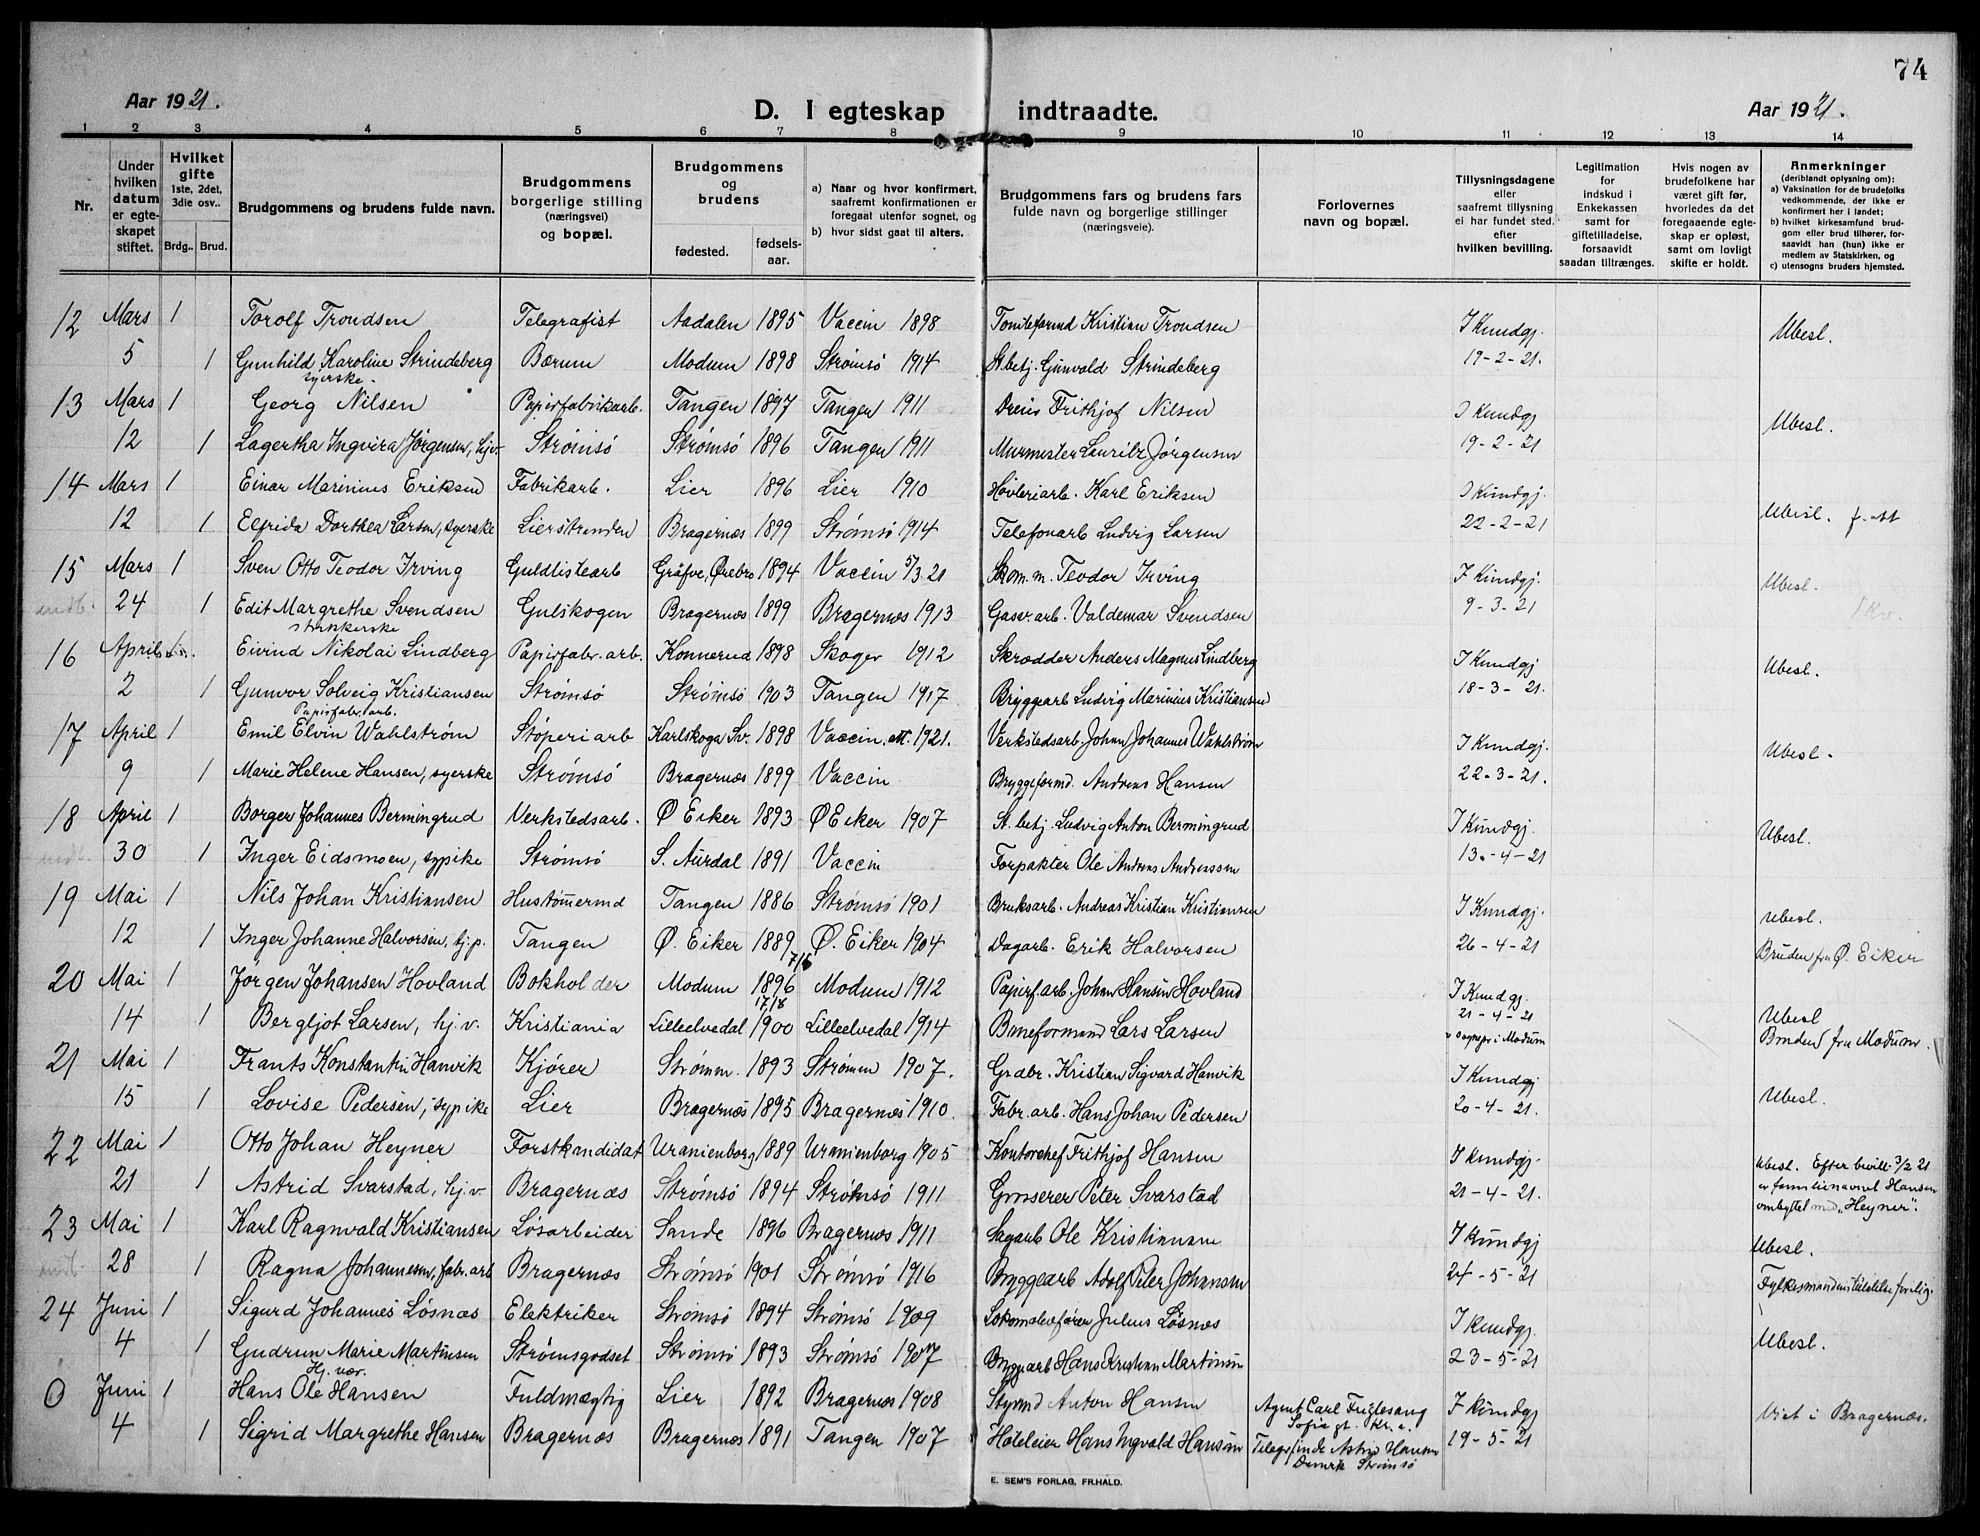 74
Aar 1921.
D. I egteskap indtraadte.
Aar 1921.
1 2 3 4 5 6 7 8 9 10 11 12 13 14
Nr.
Under hvilken datum er egteskapet stiftet.
Hvilket gifte 1ste, 2det, 3die osv..
Brdg.. Brud.
Brudgommens og brudens fulde navn.
Brudgommens borgerlige stilling (næringsvei) og bopæl.
Brudgommens og brudens
fødested. fødsels-aar.
a) Naar og hvor konfirmert, saafremt konfirmationen er foregaat utenfor sognet, og
b) hvor sidst gaat til alters.
Brudgommens fars og brudens fars fulde navn og borgerlige stillinger (næringsveie).
Forlovernes navn og bopæl.
Tillysningsdagene eller saafremt tillysning ei har fundet sted. efter hvilken bevilling.
Legitimation for indskud i Enkekassen samt for giftetilladelse, forsaavidt saadan tiltrænges.
Hvis nogen av brudefolkene har været gift før, hvorledes da det foregaaende egteskap er opløst, samt om lovligt skifte er holdt.
Anmerkninger (deriblandt oplysning om):
a) Vaksination for de brudefolks vedkommende, der ikke er konfirmert her i landet;
b) hvilket kirkesamfund brudgom eller brud tilhører, forsaavidt han (hun) ikke er medlem av Statskirken, og
c) utensogns bruders hjemsted.
12 Mars 1 Torolf Trondsen Telegrafist Aadalen 1895 Vaccin 1898 Tomteformd Kristian Trondsen I Kundgj. Ubesl.
5 1 Gunhild Karoline Strindeberg Bærum Modum 1898 Strømsö 1914 St.betj. Gunvald Strindeberg 19-2-21.
syerske
13 Mars 1 Georg Nilsen Papirfabrikarb. Tangen 1897 Tangen 1911 Dreier Frithjof Nilsen I Kundgj Ubesl.
12 1 Lagertha Ingvira Jørgensen, hjv. Strømsö Strømsö 1896 Tangen 1911 Murmester Lauritz Jörgensen 19-2-21
14 Mars 1 Einar Marinius Eriksen Fabrikarb. Lier 1896 Lier 1910 Høvleriarb. Karl Eriksen I Kundgj.
12 1 Elfrida Dorthea Larsen, syerske Lierstranden Bragernæs 1899 Strømsö 1914 Telefonarb Ludvig Larsen 22-2-21 Ubesl.
15 Mars 1 Sven Otto Teodor Irving Guldlistearb Gräfve, Ørebro 1894 Vaccin 5/3 21 Skom.m. Teodor Irving I Kundgj. Ubesl.
24 1 Edit Margrethe Svendsen Gulskogen Bragernæs 1899 Bragernæs 1913 Gasv.arb. Valdemar Svendsen 9-3-21
strikkerske
16 April Eivind Nikolai Lindberg Papirfabr.arb. Konnerud 1898 Skoger 1912 Skrædder Anders Magnus Lindberg I Kundgj Ubesl.
2 1 Gunvor Solveig Kristiansen Strømsö Strømsö 1903 Tangen 1917 Bryggearb Ludvig Marinius Kristiansen 18-3-21.
Papirfabr.arb.
17 April 1 Emil Elvin Wahlström Støperiarb Karlskoga Sv. 1898 Vaccin. att. 1921. Verkstedsarb. Johan Johannes Wahlström I Kundgj. Ubesl.
9 1 Marie Helene Hansen, syerske Strømsö Bragernæs 1899 Vaccin Bryggeformd. Andreas Hansen 22-3-21.
18 April 1 Borger Johannes Bermingrud Verkstedsarb. Ø Eiker 1893 Ø Eiker 1907 St. betj. Ludvig Anton Bermingrud I Kundgj. Ubesl.
30 1 Inger Eidsmoen, sypike Strømsö S. Aurdal 1891 Vaccin Forpakter Ole Andreas Andreassen 13.-4-21
19 Mai 1 Nils Johan Kristiansen Hustømmermd Tangen 1886 Strømsö 1901 Bruksarb. Andreas Kristian Kristiansen I Kundgj. Ubesl.
12 1 Inger Johanne Halvorsen, hj.p. Tangen Ø. Eiker 1889 Ø. Eiker 1904 Dagarb. Erik Halvorsen 26-4-21 Bruden fra Ø. Eiker
20 Mai 1 Jørgen Johansen Hovland Bokholder Modum 7/6 1896 Modum 1912 Papirfarb. Johan Hansen Hovland I Kundgj. 21-4-21 Ubesl
14 1 Bergljot Larsen, hj.v. Kristiania Lilleelvedal 17/8 1900 Lilleelvedal 1914 Baneformand Lars Larsen i Modum Bruden fra Modum.
21 Mai 1 Frants Konstantin Hanvik Kjörer Strømm. 1893 Strømm 1907. Grdbr. Kristian Sigvard Hanvik I Kundgj Ubesl.
15 1 Lovise Pedersen, sypike Lier Bragernæs 1895 Bragernæs 1910. Fabr.arb. Hans Johan Pedersen 20-4-21.
22 Mai 1 Otto Johan Heyner Forstkandidat Uranienborg 1889 Uranienborg 1905 Kontorchef Frithjof Hansen I Kundgj. Ubesl. Efter bevill. 3/2 21
21 1 Astrid Svarstad, hj.v. Bragernæs Strømsö 1894 Strømsö 1911 Grosserer Peter Svarstad 21-4-21. er familienavnet Hansen ombyttet med "Heyner".
23 Mai 1 Karl Ragnvald Kristiansen Løsarbeider Sande 1896 Bragernæs 1911 Sagarb Ole Kristiansen I Kundgj Ubesl.
28 1 Ragna Johannesen, fabr.arb Bragernæs Strømsö 1901 Strømsö 1916 Bryggearb Adolf Peter Johansen 24-5-21
24 Juni 1 Sigurd Johannes Løsnæs Elektriker Strømsö 1894 Strømsö 1909 Lokomotivfører Julius Løsnæs I Kundgj.
4 1 Gudrun Marie Martinsen Strømsgodset Strømsö 1893 Strømsö 1907 Bryggearb Hans Kristian Martinsen 23-5-21 Ubesl.
Hj. vær.
0 Juni 1 Hans Ole Hansen Fuldmægtig Lier 1892 Bragernæs 1908 Styrmd Anton Hansen Agent Carl Fuglesang I Kundgj Viet i Bragernæs.
Sofiagt. Kr.a.
4 1 Sigrid Margrethe Hansen Bragernæs Bragernæs 1891 Tangen 1907 Hoteleier Hans Ingvald Hansen Astrid Hansen 19-5-21
Strømsö
E. SEM'S FORLAG, FR.HALD.